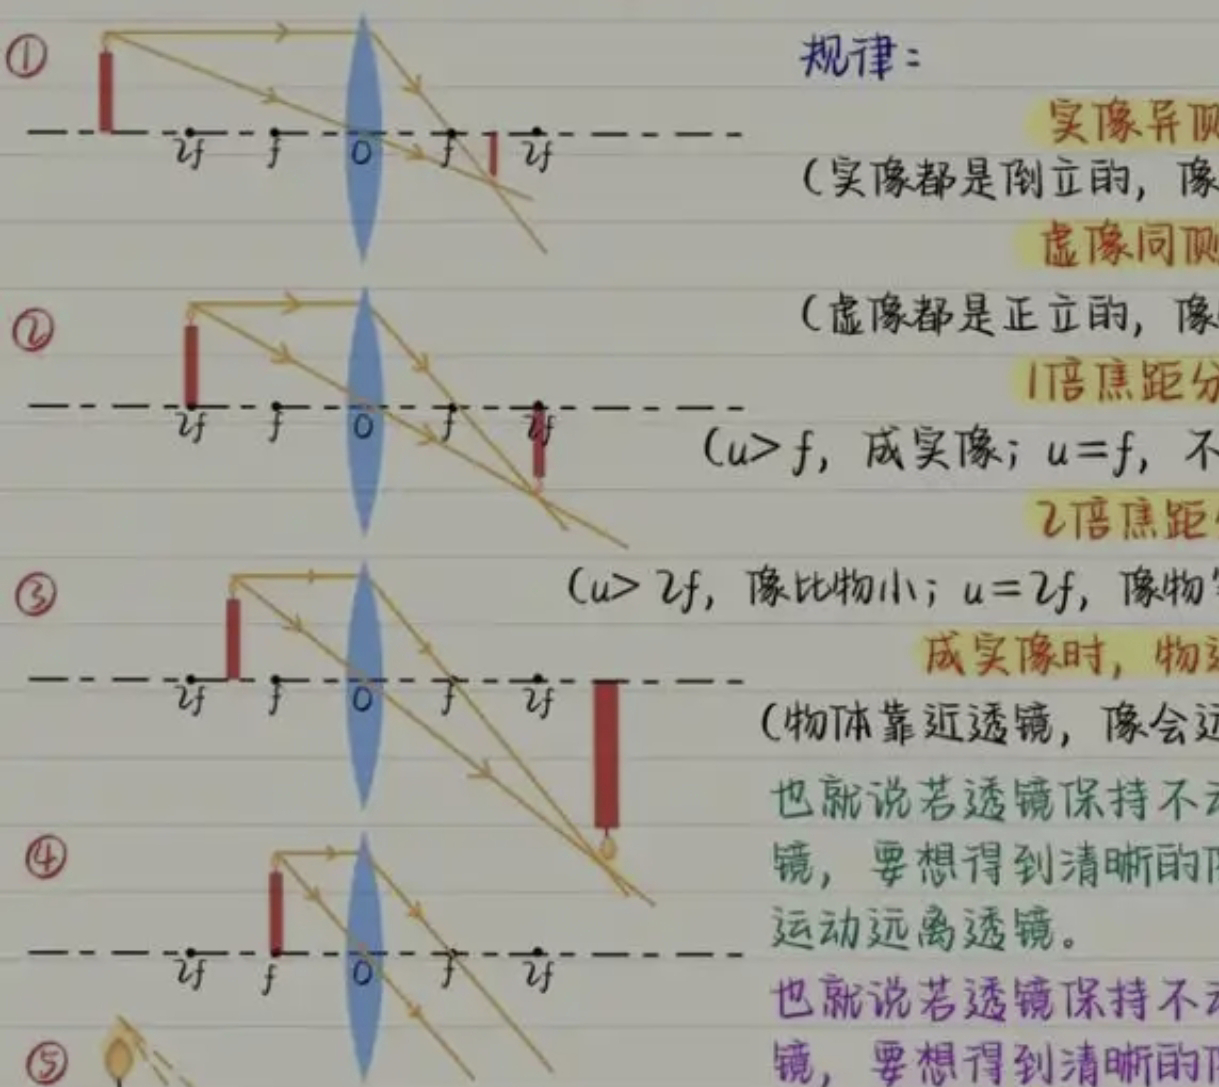 ①
2f f O f 2f
规律：
实像异侧
（实像都是倒立的，像
虚像同侧
②
（虚像都是正立的，像
2f f O f 2f
1倍焦距分
（u> f，成实像；u=f，不
2倍焦距
③
（u> 2f，像比物小；u=2f，像物
成实像时，物
2f f O f 2f
（物体靠近透镜，像会远
也就说若透镜保持不
④
镜，要想得到清晰的
运动远离透镜。
2f f O f 2f
也就说若透镜保持不
⑤
镜，要想得到清晰的